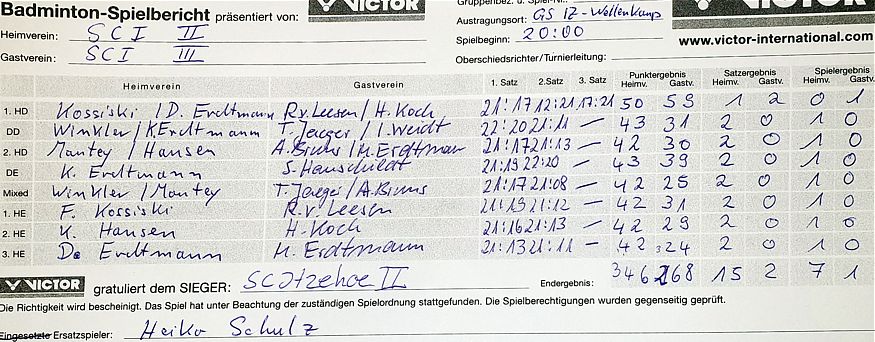 Badminton-Spielbericht präsentiert von: VICTOR
Heimverein: SCI II
Gastverein: SCI III
Austragungsort: GS IZ-Wellenkamp
Spielbeginn: 20:00
Oberschiedsrichter/Turnierleitung:
www.victor-international.com
Heimverein Gastverein 1. Satz 2. Satz 3. Satz Punktergebnis Heimv. Gastv. Satzergebnis Heimv. Gastv. Spielergebnis Heimv. Gastv.
1. HD Kossiski / D. Erdtmann R.v.Leesen / H. Koch 21:17 12:21 17:21 50 59 1 2 0 1
DD Winkler / K Erdtmann T. Jaeger / I. Weidt 22:20 21:11 — 43 31 2 0 1 0
2. HD Mantey / Hansen A. Bruns / M. Erdtmann 21:17 21:13 — 42 30 2 0 1 0
DE K. Erdtmann S. Hauschildt 21:19 22:20 — 43 39 2 0 1 0
Mixed Winkler / Mantey T. Jaeger / A. Bruns 21:17 21:08 — 42 25 2 0 1 0
1. HE F. Kossiski R.v. Leesen 21:19 21:12 — 42 31 2 0 1 0
2. HE K. Hansen H. Koch 21:16 21:13 — 42 29 2 0 1 0
3. HE D. Erdtmann M. Erdtmann 21:13 21:11 — 42 24 2 0 1 0
VICTOR gratuliert dem SIEGER: SC Itzehoe II Endergebnis: 346 268 15 2 7 1
Die Richtigkeit wird bescheinigt. Das Spiel hat unter Beachtung der zuständigen Spielordnung stattgefunden. Die Spielberechtigungen wurden gegenseitig geprüft.
Eingesetzte Ersatzspieler: Heiko Schulz